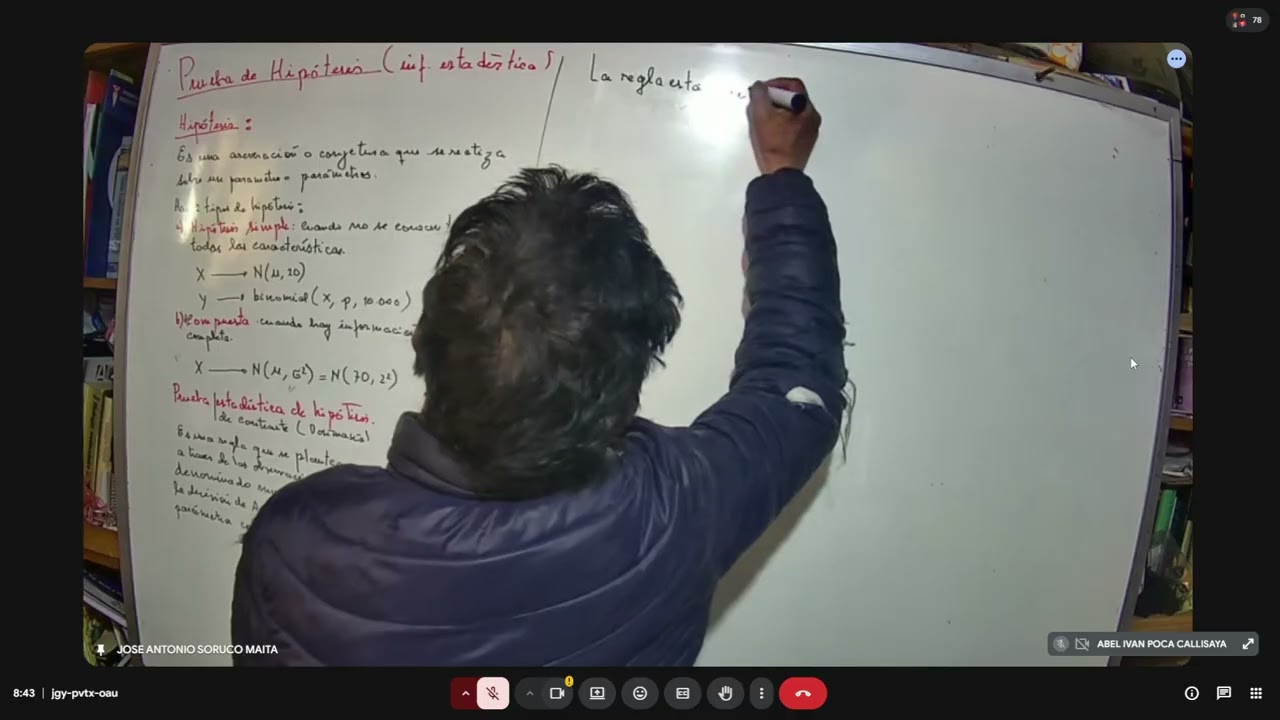 78
Prueba de Hipótesis (inf. estadística)
Hipótesis:
Es una aseveración o conjetura que se realiza
sobre un parámetro o parámetros.
tipos de hipótesis:
a) Hipótesis simple: Cuando no se conocen
todas las características.
X → N(μ, 20)
Y → binomial (x, p, 10.000)
b) Compuesta cuando hay información
completa.
X → N(μ, σ²) = N(70, 2²)
Prueba estadística de hipótesis.
de contraste (Docimasia)
Es una regla que se plantea
a traves de las
denominado
la decisión de
parámetro
La regla esta
JOSE ANTONIO SORUCO MAITA
ABEL IVAN POCA CALLISAYA
8:43 | jgy-pvtx-oau